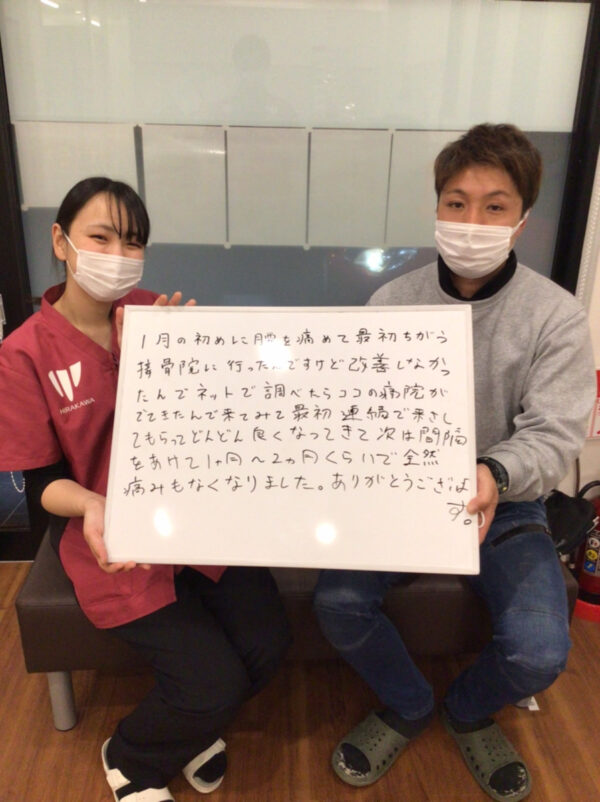 1月の初めに腰を痛めて最初ちがう
接骨院に行ったんですけど改善しなかっ
たんでネットで調べたらココの病院が
でてきたんで来てみて最初連続で来さし
てもらってどんどん良くなってきて次は間隔
をあけて1ヵ月〜2ヵ月くらいで全然
痛みもなくなりました。ありがとうござぱ
す。
HIRAKAWA